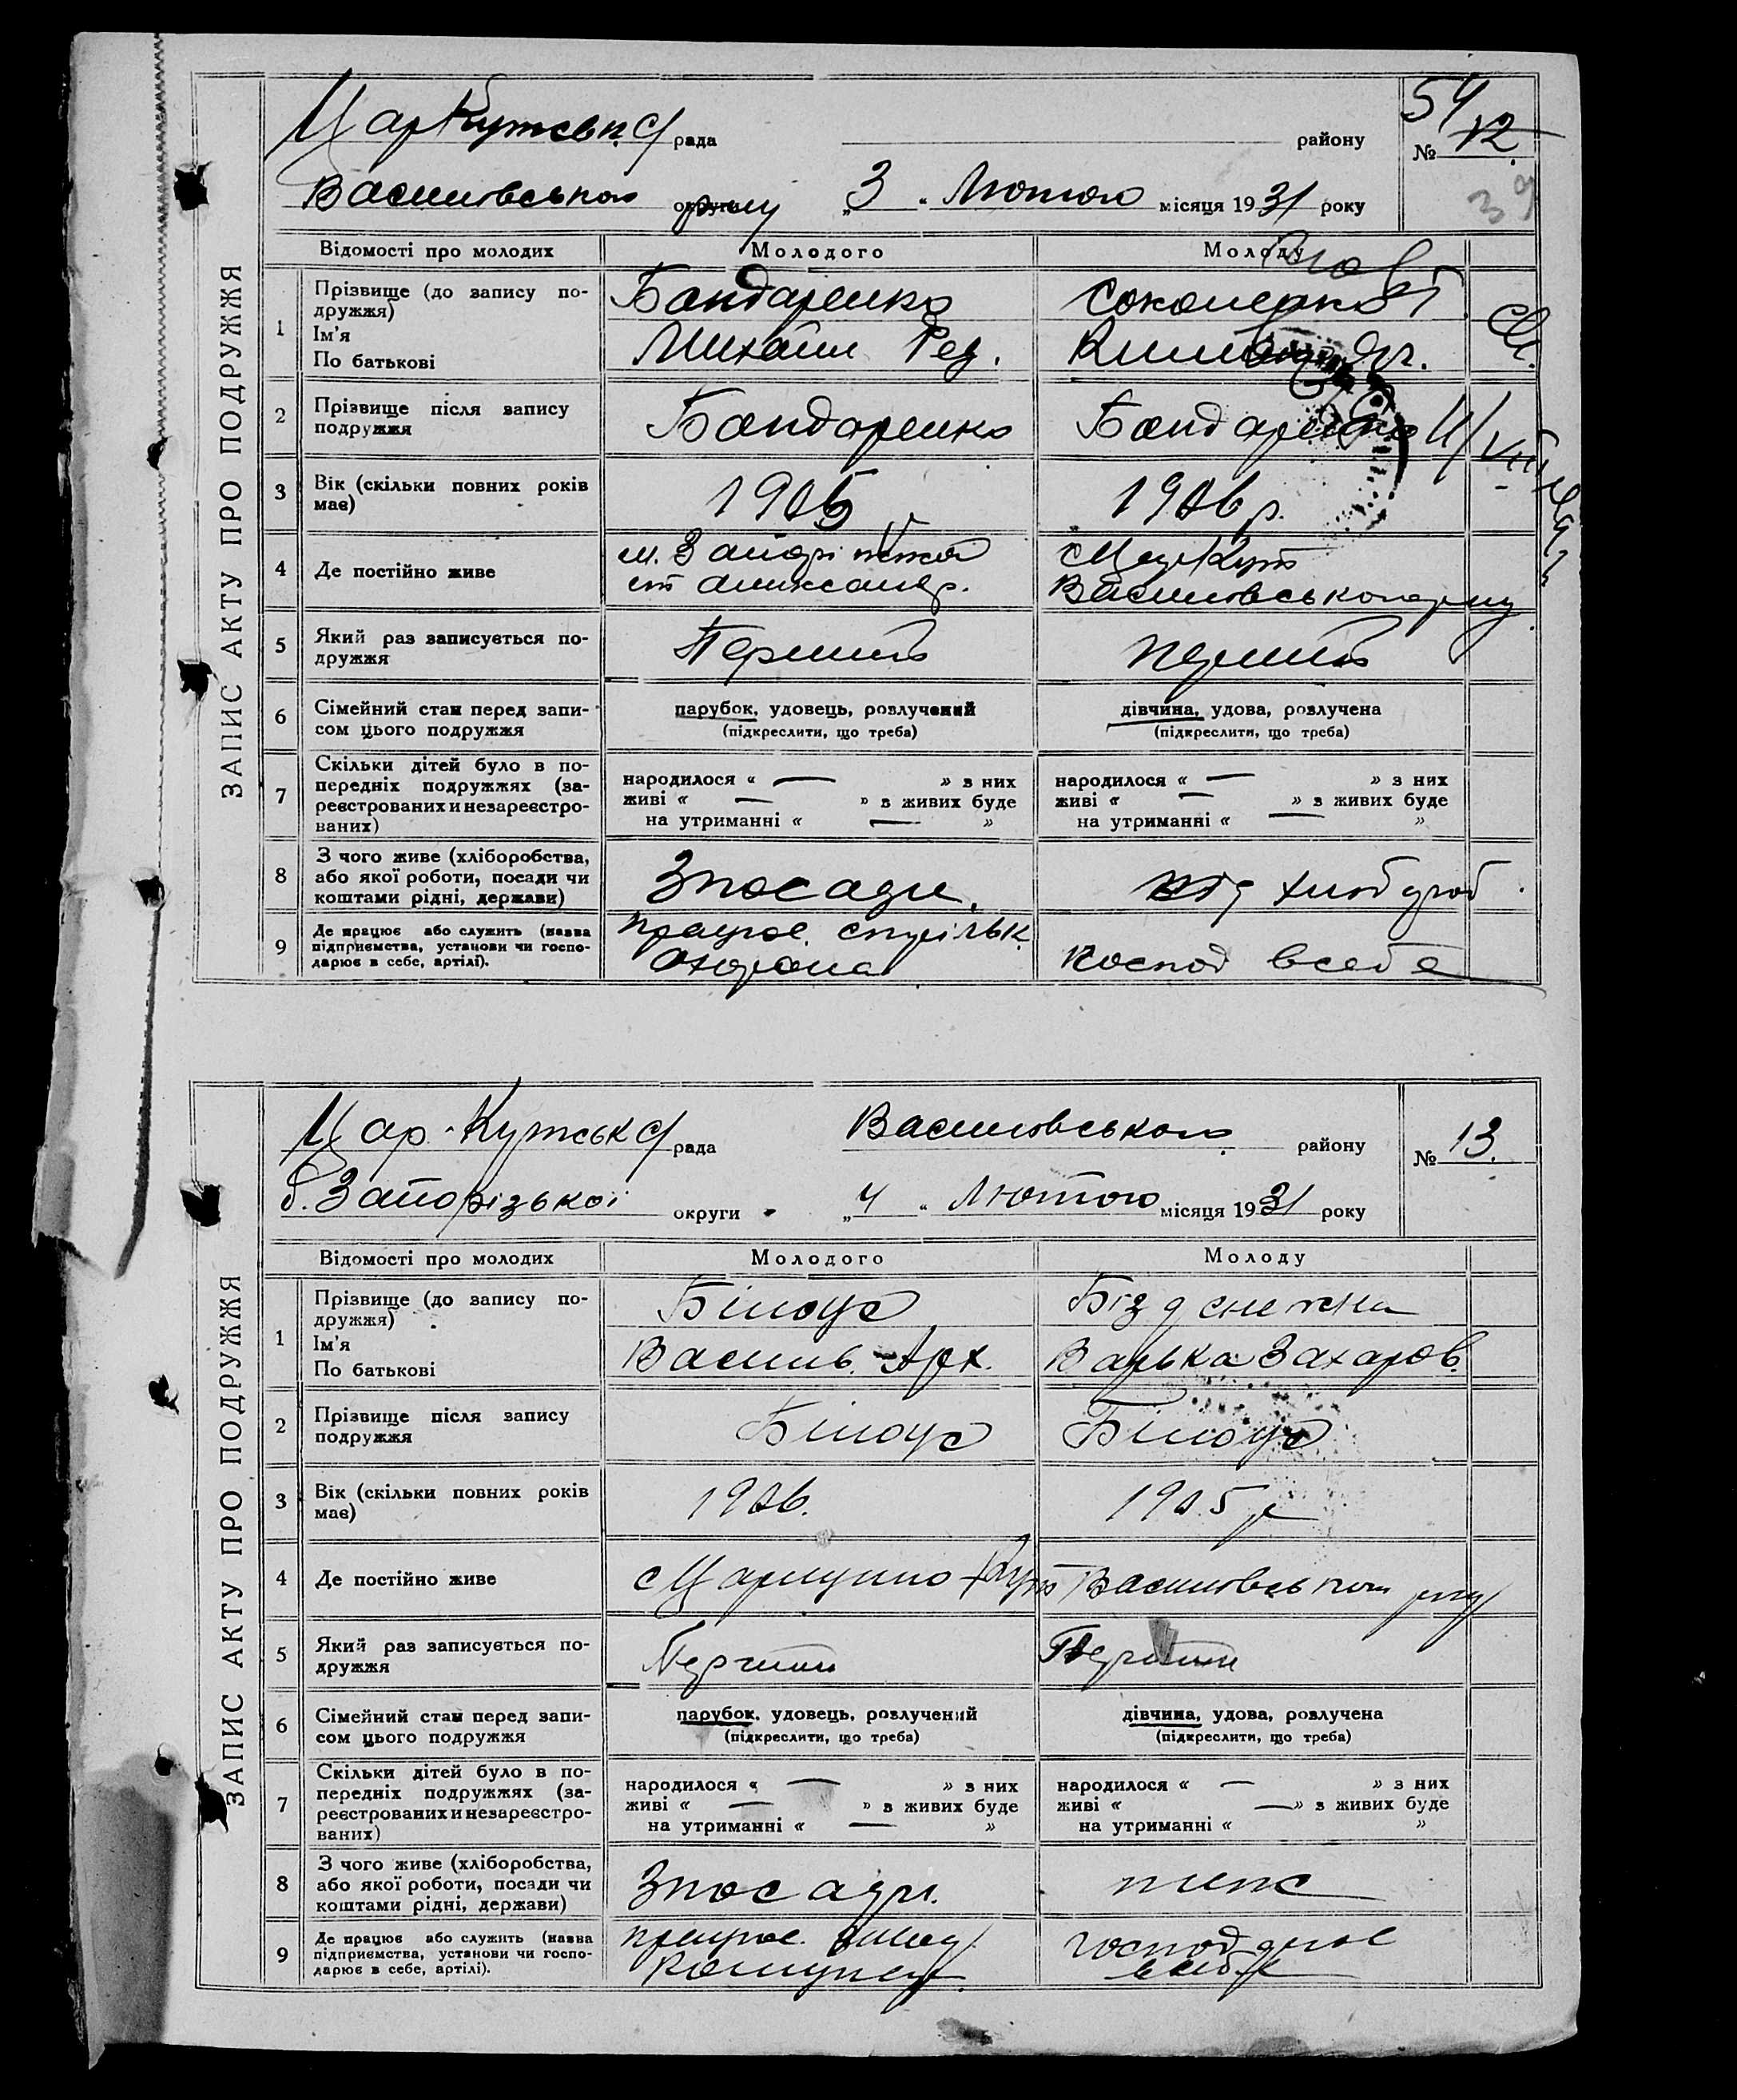 ЗАПИС АКТУ ПРО ПОДРУЖЖЯ
ЦарКутськ с/рада району № 54/12
39
Василівського округи р-ну „3“ Лютого місяця 1931 року
Відомості про молодих Молодого Молоду
1 Прізвище (до запису по-
дружжя)
Ім'я
По батькові
Бондаренко
Михайло Фед.
2 Прізвище після запису
подружжя
Бондаренко Бондаренко
3 Вік (скільки повних років
має)
1905 1906 р.
4 Де постійно живе
м. Запоріжжя
ст Александр.
с Цар Кут
Василівського р-ну
5 Який раз записується по-
дружжя
Перший перший
6 Сімейний стан перед запи-
сом цього подружжя
парубок, удовець, розлучений
(підкреслити, що треба)
дівчина, удова, розлучена
(підкреслити, що треба)
7 Скільки дітей було в по-
передніх подружжях (за-
реєстрованих и незареєстро-
ваних)
народилося « — » з них
живі « — » з живих буде
на утриманні « — »
народилося « — » з них
живі « — » з живих буде
на утриманні « — »
8 З чого живе (хліборобства,
або якої роботи, посади чи
коштами рідні, держави)
З посади. від хлібороб.
9 Де працює або служить (назва
підприємства, установи чи госпо-
дарює в себе, артілі).
працює стрільк.
Охорона
господ в себе
ЗАПИС АКТУ ПРО ПОДРУЖЖЯ
Цар.-Кутськ с/рада Василівського району № 13.
б. Запорізької округи „4“ Лютого місяця 1931 року
Відомості про молодих Молодого Молоду
1 Прізвище (до запису по-
дружжя)
Ім'я
По батькові
Білоус
Василь Арх.
Бізденежна
Варька Захаров.
2 Прізвище після запису
подружжя
Білоус Білоус
3 Вік (скільки повних років
має)
1906. 1905 р
4 Де постійно живе
с Царицино-Кут Василівського р-ну
5 Який раз записується по-
дружжя
Перший Перший
6 Сімейний стан перед запи-
сом цього подружжя
парубок, удовець, розлучений
(підкреслити, що треба)
дівчина, удова, розлучена
(підкреслити, що треба)
7 Скільки дітей було в по-
передніх подружжях (за-
реєстрованих и незареєстро-
ваних)
народилося « — » з них
живі « — » з живих буде
на утриманні « — »
народилося « — » з них
живі « —» з живих буде
на утриманні « »
8 З чого живе (хліборобства,
або якої роботи, посади чи
коштами рідні, держави)
З посади.
9 Де працює або служить (назва
підприємства, установи чи госпо-
дарює в себе, артілі).
працює
господарює
в себе